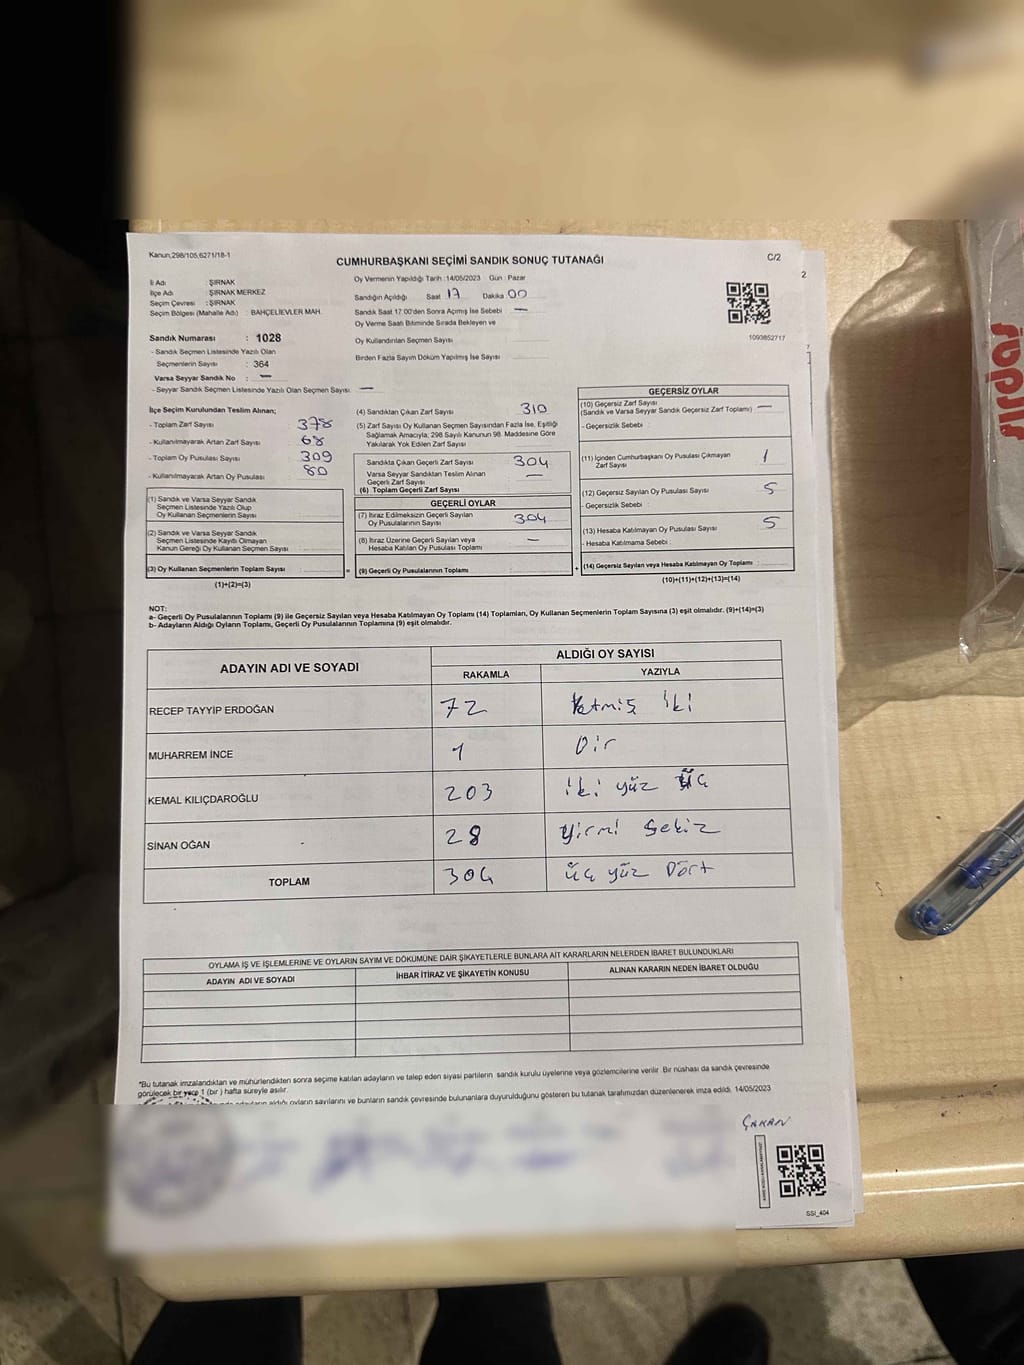 Kanun,298/105,6271/18-1
CUMHURBAŞKANI SEÇİMİ SANDIK SONUÇ TUTANAĞI
C/2
2
İl Adı : ŞIRNAK
İlçe Adı : ŞIRNAK MERKEZ
Seçim Çevresi : ŞIRNAK
Seçim Bölgesi (Mahalle Adı) : BAHÇELİEVLER MAH.
Sandık Numarası : 1028
- Sandık Seçmen Listesinde Yazılı Olan
Seçmenlerin Sayısı : 364
Varsa Seyyar Sandık No : —
- Seyyar Sandık Seçmen Listesinde Yazılı Olan Seçmen Sayısı : —
Oy Vermenin Yapıldığı Tarih :14/05/2023 Gün : Pazar
Sandığın Açıldığı Saat 17 Dakika 00
Sandık Saat 17:00'den Sonra Açımış İse Sebebi —
Oy Verme Saati Bitiminde Sırada Bekleyen ve
Oy Kullandırılan Seçmen Sayısı
Birden Fazla Sayım Döküm Yapılmış İse Sayısı
1093852717
İlçe Seçim Kurulundan Teslim Alınan;
- Toplam Zarf Sayısı 378
- Kullanılmayarak Artan Zarf Sayısı 68
- Toplam Oy Pusulası Sayısı 309
- Kullanılmayarak Artan Oy Pusulası 80
(1) Sandık ve Varsa Seyyar Sandık
Seçmen Listesinde Yazılı Olup
Oy Kullanan Seçmenlerin Sayısı
(2) Sandık ve Varsa Seyyar Sandık
Seçmen Listesinde Kayıtlı Olmayan
Kanun Gereği Oy Kullanan Seçmen Sayısı
(3) Oy Kullanan Seçmenlerin Toplam Sayısı =
(1)+(2)=(3)
(4) Sandıktan Çıkan Zarf Sayısı 310
(5) Zarf Sayısı Oy Kullanan Seçmen Sayısından Fazla İse, Eşitliği
Sağlamak Amacıyla; 298 Sayılı Kanunun 98. Maddesine Göre
Yakılarak Yok Edilen Zarf Sayısı
Sandıkta Çıkan Geçerli Zarf Sayısı 304
Varsa Seyyar Sandıktan Teslim Alınan —
Geçerli Zarf Sayısı
(6) Toplam Geçerli Zarf Sayısı
GEÇERLİ OYLAR
(7) İtiraz Edilmeksizin Geçerli Sayılan
Oy Pusulalarının Sayısı 304
(8) İtiraz Üzerine Geçerli Sayılan veya
Hesaba Katılan Oy Pusulası Toplamı —
(9) Geçerli Oy Pusulalarının Toplamı +
GEÇERSİZ OYLAR
(10) Geçersiz Zarf Sayısı
(Sandık ve Varsa Seyyar Sandık Geçersiz Zarf Toplamı) —
- Geçersizlik Sebebi :
(11) İçinden Cumhurbaşkanı Oy Pusulası Çıkmayan
Zarf Sayısı 1
(12) Geçersiz Sayılan Oy Pusulası Sayısı 5
- Geçersizlik Sebebi :
(13) Hesaba Katılmayan Oy Pusulası Sayısı 5
- Hesaba Katılmama Sebebi :
(14) Geçersiz Sayılan veya Hesaba Katılmayan Oy Toplamı
(10)+(11)+(12)+(13)=(14)
NOT:
a- Geçerli Oy Pusulalarının Toplamı (9) ile Geçersiz Sayılan veya Hesaba Katılmayan Oy Toplamı (14) Toplamları, Oy Kullanan Seçmenlerin Toplam Sayısına (3) eşit olmalıdır. (9)+(14)=(3)
b- Adayların Aldığı Oyların Toplamı, Geçerli Oy Pusulalarının Toplamına (9) eşit olmalıdır.
ADAYIN ADI VE SOYADI
ALDIĞI OY SAYISI
RAKAMLA YAZIYLA
RECEP TAYYİP ERDOĞAN 72 Yetmiş iki
MUHARREM İNCE 1 Bir
KEMAL KILIÇDAROĞLU 203 iki yüz üç
SİNAN OĞAN 28 Yirmi Sekiz
TOPLAM 304 üç yüz Dört
OYLAMA İŞ VE İŞLEMLERİNE VE OYLARIN SAYIM VE DÖKÜMÜNE DAİR ŞİKAYETLERLE BUNLARA AİT KARARLARIN NELERDEN İBARET BULUNDUKLARI
ADAYIN ADI VE SOYADI İHBAR İTİRAZ VE ŞİKAYETİN KONUSU ALINAN KARARIN NEDEN İBARET OLDUĞU
*Bu tutanak imzalandıktan ve mühürlendikten sonra seçime katılan adayların ve talep eden siyasi partilerin sandık kurulu üyelerine veya gözlemcilerine verilir. Bir nüshası da sandık çevresinde
görülecek bir yere 1 (bir) hafta süreyle asılır.
adayların aldığı oyların sayılarını ve bunların sandık çevresinde bulunanlara duyurulduğunu gösteren bu tutanak tarafımızdan düzenlenerek imza edildi. 14/05/2023
SSI_404
sırdaş